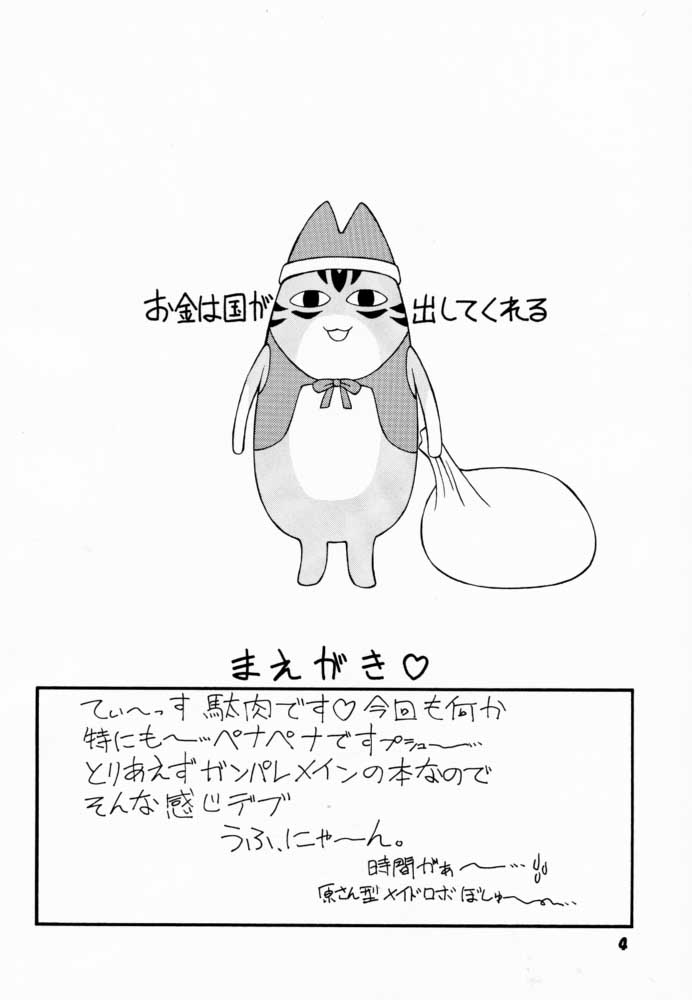 お金は国が 出してくれる
まえがき♡
てぃ〜っす 駄肉です♡今回も何か
特にも〜…ペナペナですプシュー〜…
とりあえずガンパレメインの本なので
そんな感じデブ
うふ、にゃ〜ん。
時間がぁ〜…
原さん型メイドロボぼしゅ〜…
4